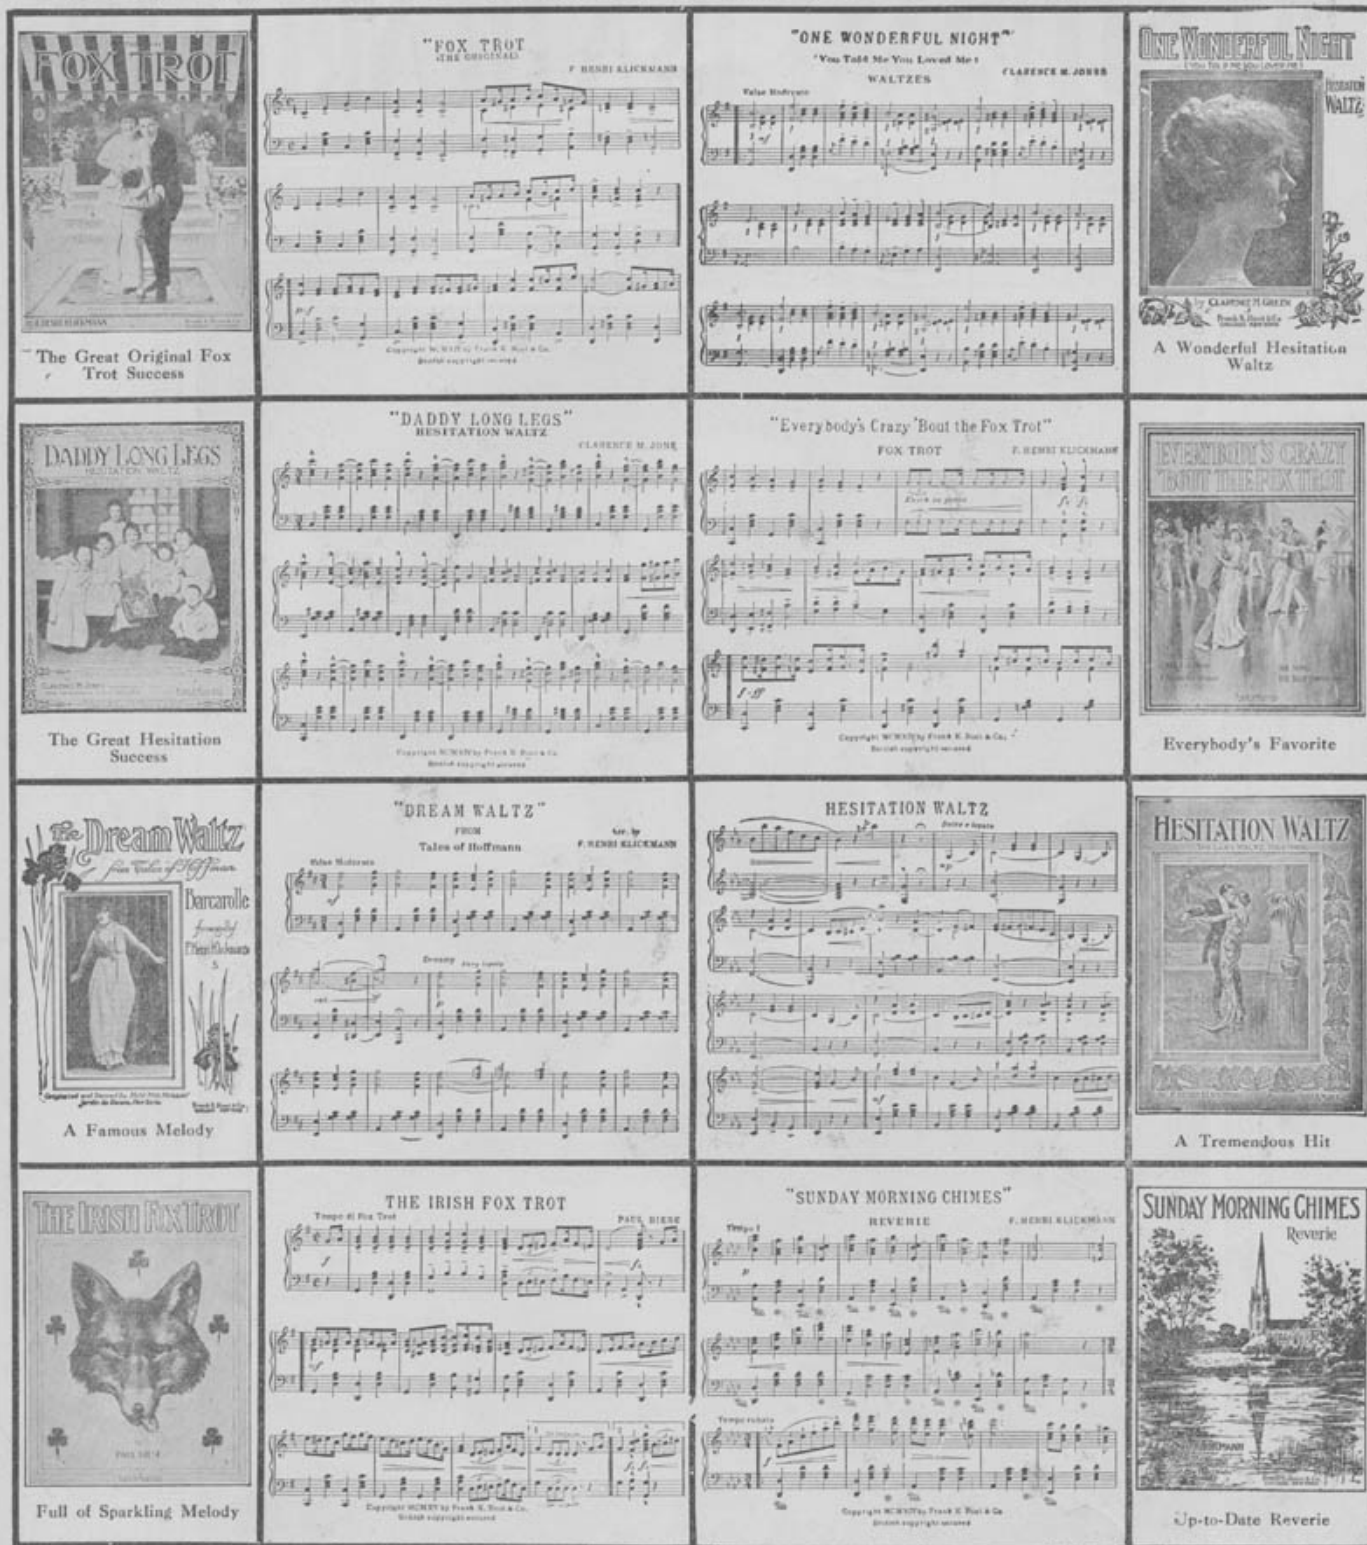 FOX TROT
F. HENRI KLICKMANN
The Great Original Fox
Trot Success
"FOX TROT
(THE ORIGINAL)
F HENRI KLICKMANN
Copyright MCMXIV by Frank K. Root & Co.
British copyright secured
"ONE WONDERFUL NIGHT"
"You Told Me You Loved Me"
WALTZES
CLARENCE M. JONES
Valse Moderato
ONE WONDERFUL NIGHT
(YOU TOLD ME YOU LOVED ME)
HESITATION
WALTZ
by CLARENCE M. GREEN
Frank K. Root & Co.
A Wonderful Hesitation
Waltz
DADDY LONG LEGS
HESITATION WALTZ
CLARENCE M. JONES
The Great Hesitation
Success
"DADDY LONG LEGS"
HESITATION WALTZ
CLARENCE M. JONE
Copyright MCMXIV by Frank K. Root & Co.
British copyright secured
"Everybody's Crazy 'Bout the Fox Trot"
FOX TROT
F. HENRI KLICKMANN
f-ff
Copyright MCMXIV by Frank K. Root & Co.
British copyright secured
EVERYBODY'S CRAZY
'BOUT THE FOX TROT
Everybody's Favorite
The Dream Waltz
from Tales of Hoffman
Barcarolle
F. Henri Klickmann
5
Frank K. Root & Co.
A Famous Melody
"DREAM WALTZ"
FROM
Tales of Hoffmann
Arr. by
F. HENRI KLICKMANN
Valse Moderato
mf
Dreamy
rit
p
HESITATION WALTZ
Dolce e legato
mp
mf
HESITATION WALTZ
A Tremendous Hit
THE IRISH FOX TROT
PAUL BIESE
Full of Sparkling Melody
THE IRISH FOX TROT
Tempo di Fox Trot
PAUL BIESE
f
Copyright MCMXV by Frank K. Root & Co.
British copyright secured
"SUNDAY MORNING CHIMES"
REVERIE
F. HENRI KLICKMANN
Tempo I
p
Tempo rubato
f
Copyright MCMXIV by Frank K. Root & Co
British copyright secured
SUNDAY MORNING CHIMES
Reverie
Up-to-Date Reverie